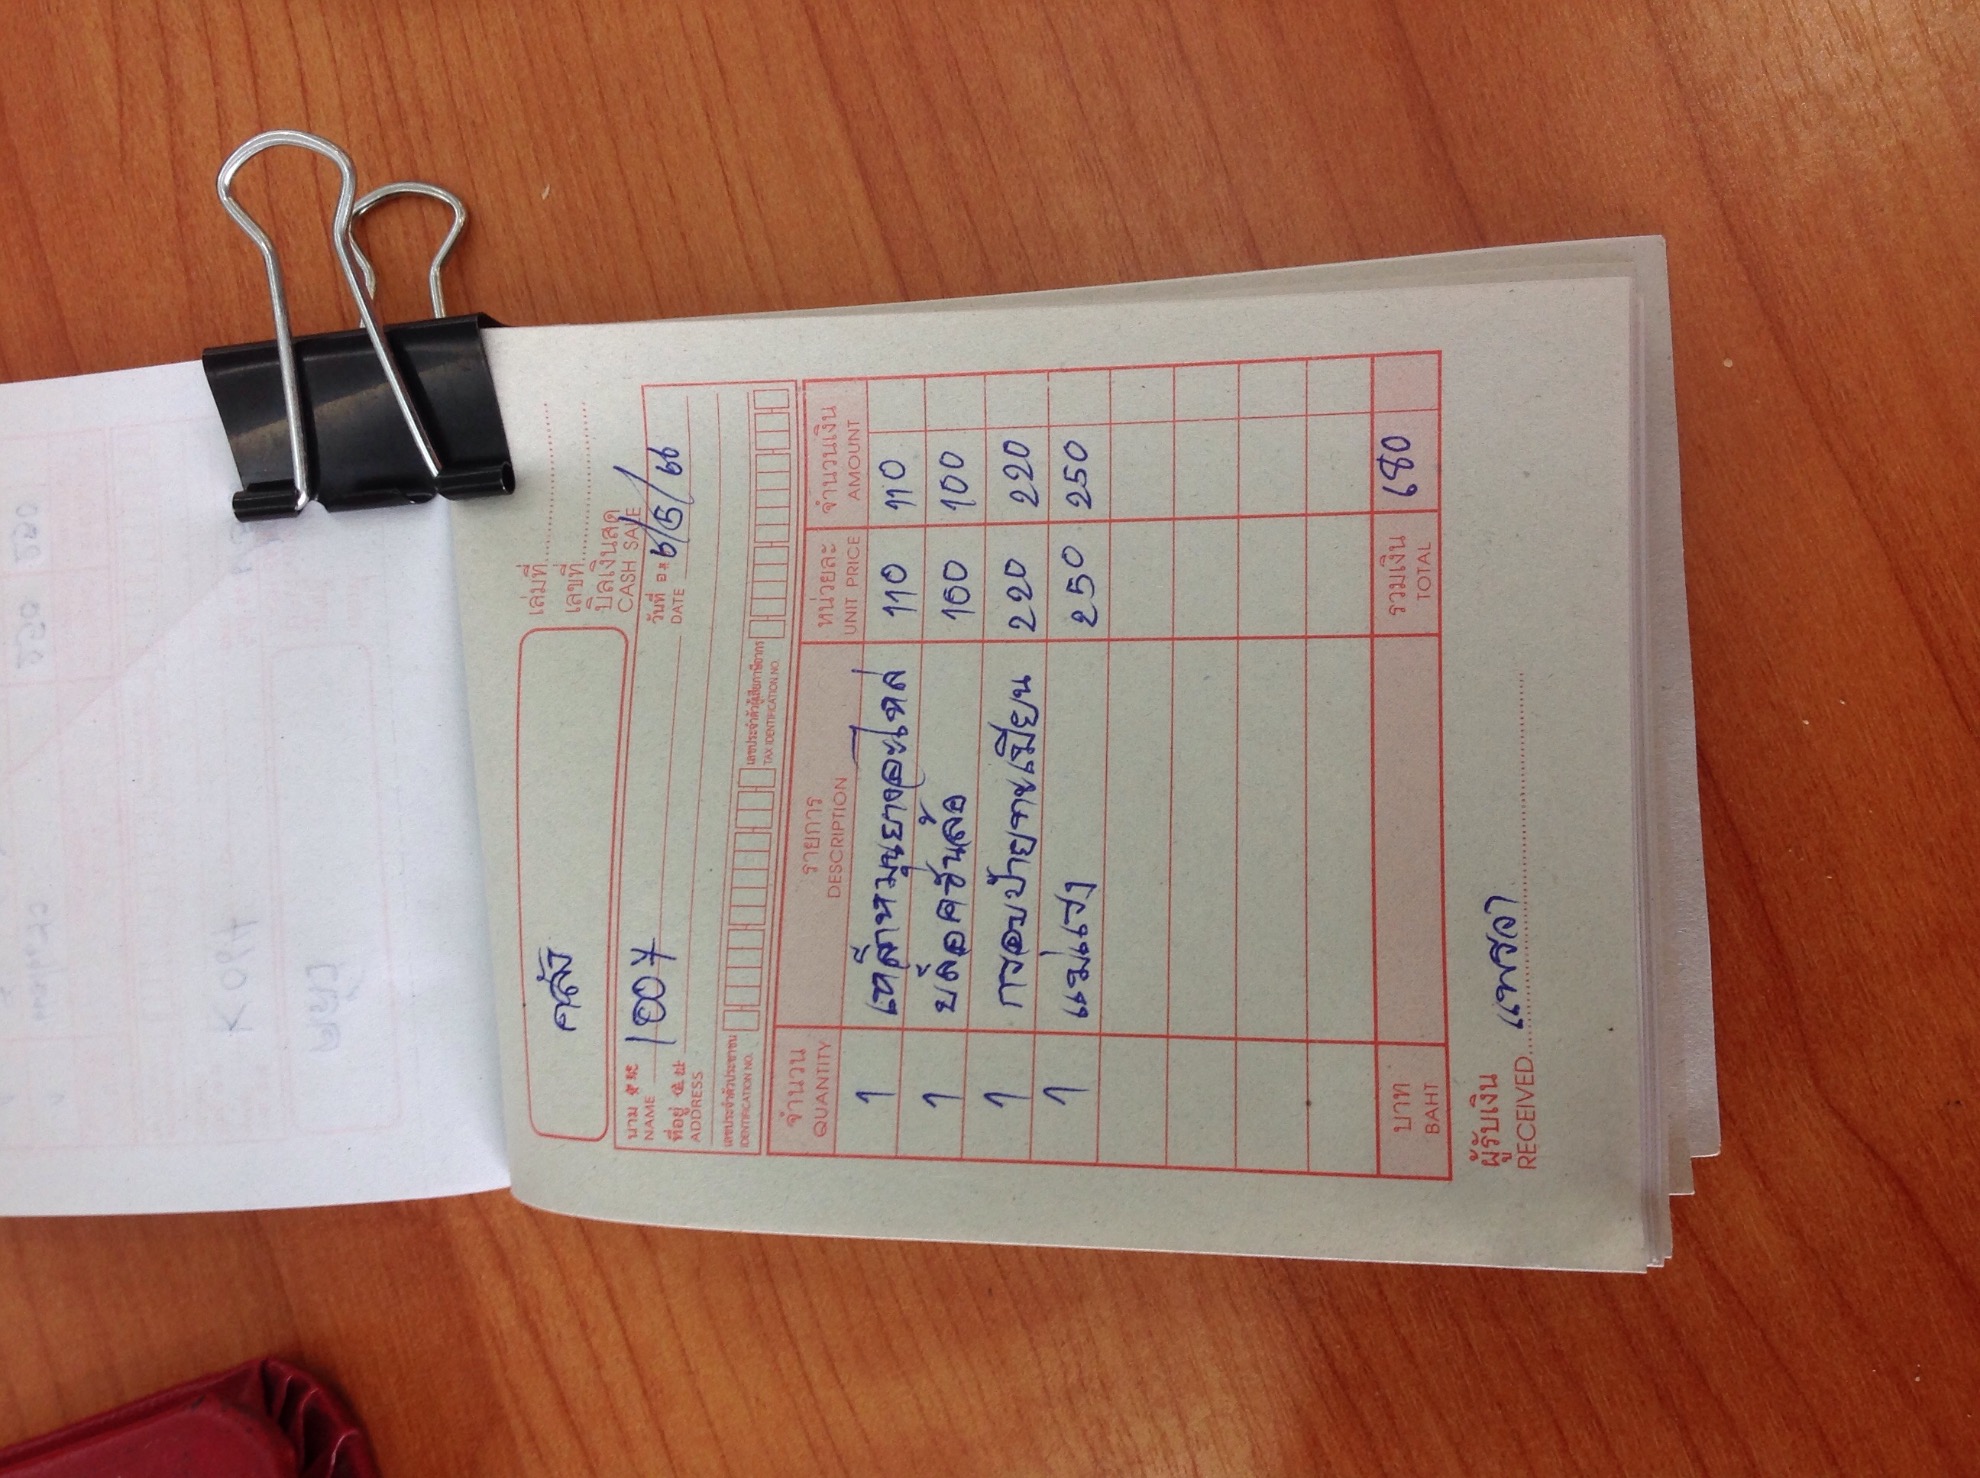 เล่มที่
เลขที่
บิลเงินสด
CASH SALE
คลัง
นาม
NAME
1007
วันที่
DATE
6/5/66
ที่อยู่
ADDRESS
เลขประจำตัวประชาชน
IDENTIFICATION NO.
เลขประจำตัวผู้เสียภาษีอากร
TAX IDENTIFICATION NO.
จำนวน รายการ หน่วยละ จำนวนเงิน
QUANTITY DESCRIPTION UNIT PRICE AMOUNT
1 110 110
1 บล๊อคขันล้อ 100 100
1 กรอบป้ายทะเบียน 220 220
1 แม่แรง 250 250
บาท รวมเงิน 680
BAHT TOTAL
ผู้รับเงิน
RECEIVED